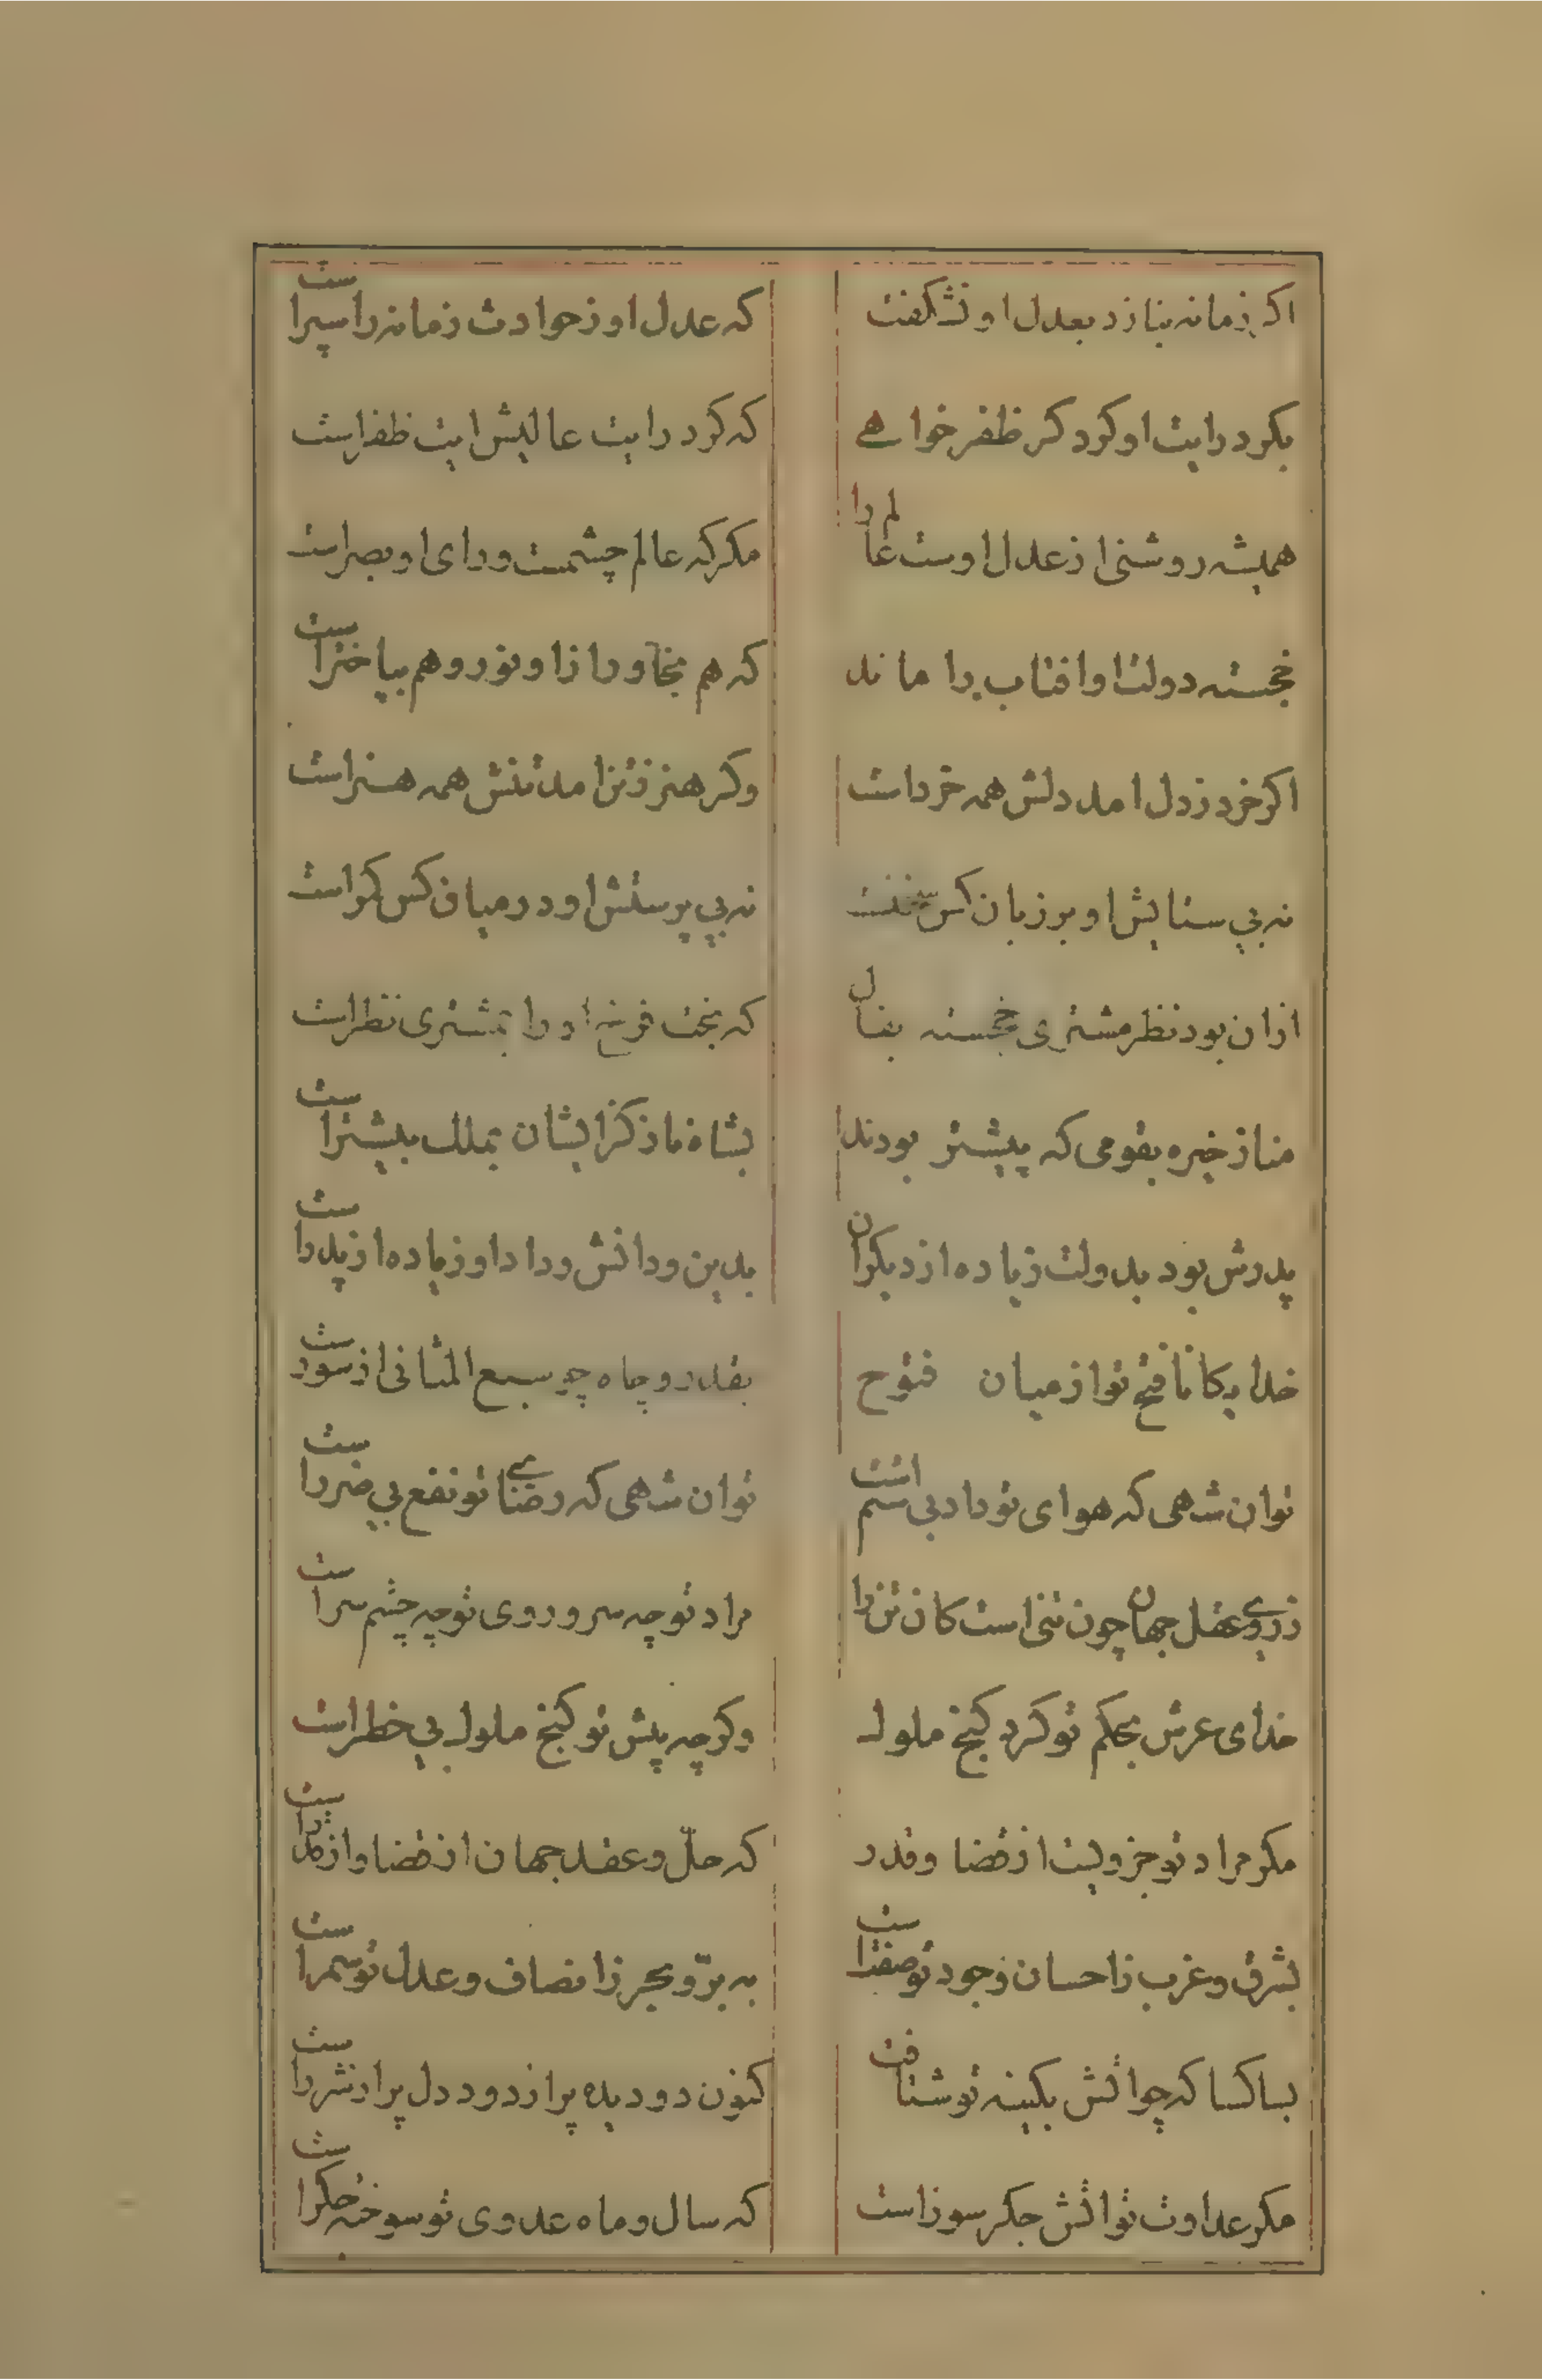 اکر زمانه بنازد بعدل او نشکفت
که عدل او ز حوادث زمانه را سپراست
بکرد رایت او کرد کر ظفر خواهے
که کرد رایت عالیش ایت ظفراست
همیشه روشنی از عدل اوست عالم را
مکر که عالم چشمست و رای او بصراست
خجسته دولت او افتاب را ماند
که هم بخاور ازو نور و هم بباختراست
اکر خرد ز دل امد دلش همه خرداست
وکر هنر ز تن امد تنش همه هنراست
نه بی ستایش او بر زبان کس سخنست
نه بی پرستش او در میان کس کمراست
ازان بود نظر مشتری خجسته بفال
که بخت فرخ او را بمشتری نظراست
مناز خیره بقومی که پیشتر بودند
بشاه ناز کز ایشان بملک بیشتراست
پدرش بود بدولت زیاده از دیکران
بدین و دانش و داد او زیاده از پدراست
خدایکانا فتح تو از میان فتوح
بقدر و جاه چو سبع المثانی از سوراست
تو ان شهی که هوای تو داد بی ستم است
تو ان شهی که رضای تو نفع بی ضرراست
ز روے عقل جهان چون تنی است کان تن را
مراد تو چه سر و روی تو چه چشم سراست
خدای عرش بحکم تو کرد کنج ملوک
وکرچه پیش تو کنج ملوک بی خطراست
مکر مراد تو جزویست از قضا و قدر
که حلّ و عقد جهان از قضا و از قدراست
بشرق و غرب ز احسان وجود تو صفت است
به برّ و بحر ز انصاف و عدل تو سمراست
بسا کسا که چو اتش بکینه تو شتافت
کنون دو دیده پر از دود دل پر از شرراست
مکر عداوت تو اتش جکر سوزاست
که سال و ماه عدوی تو سوخته جکراست